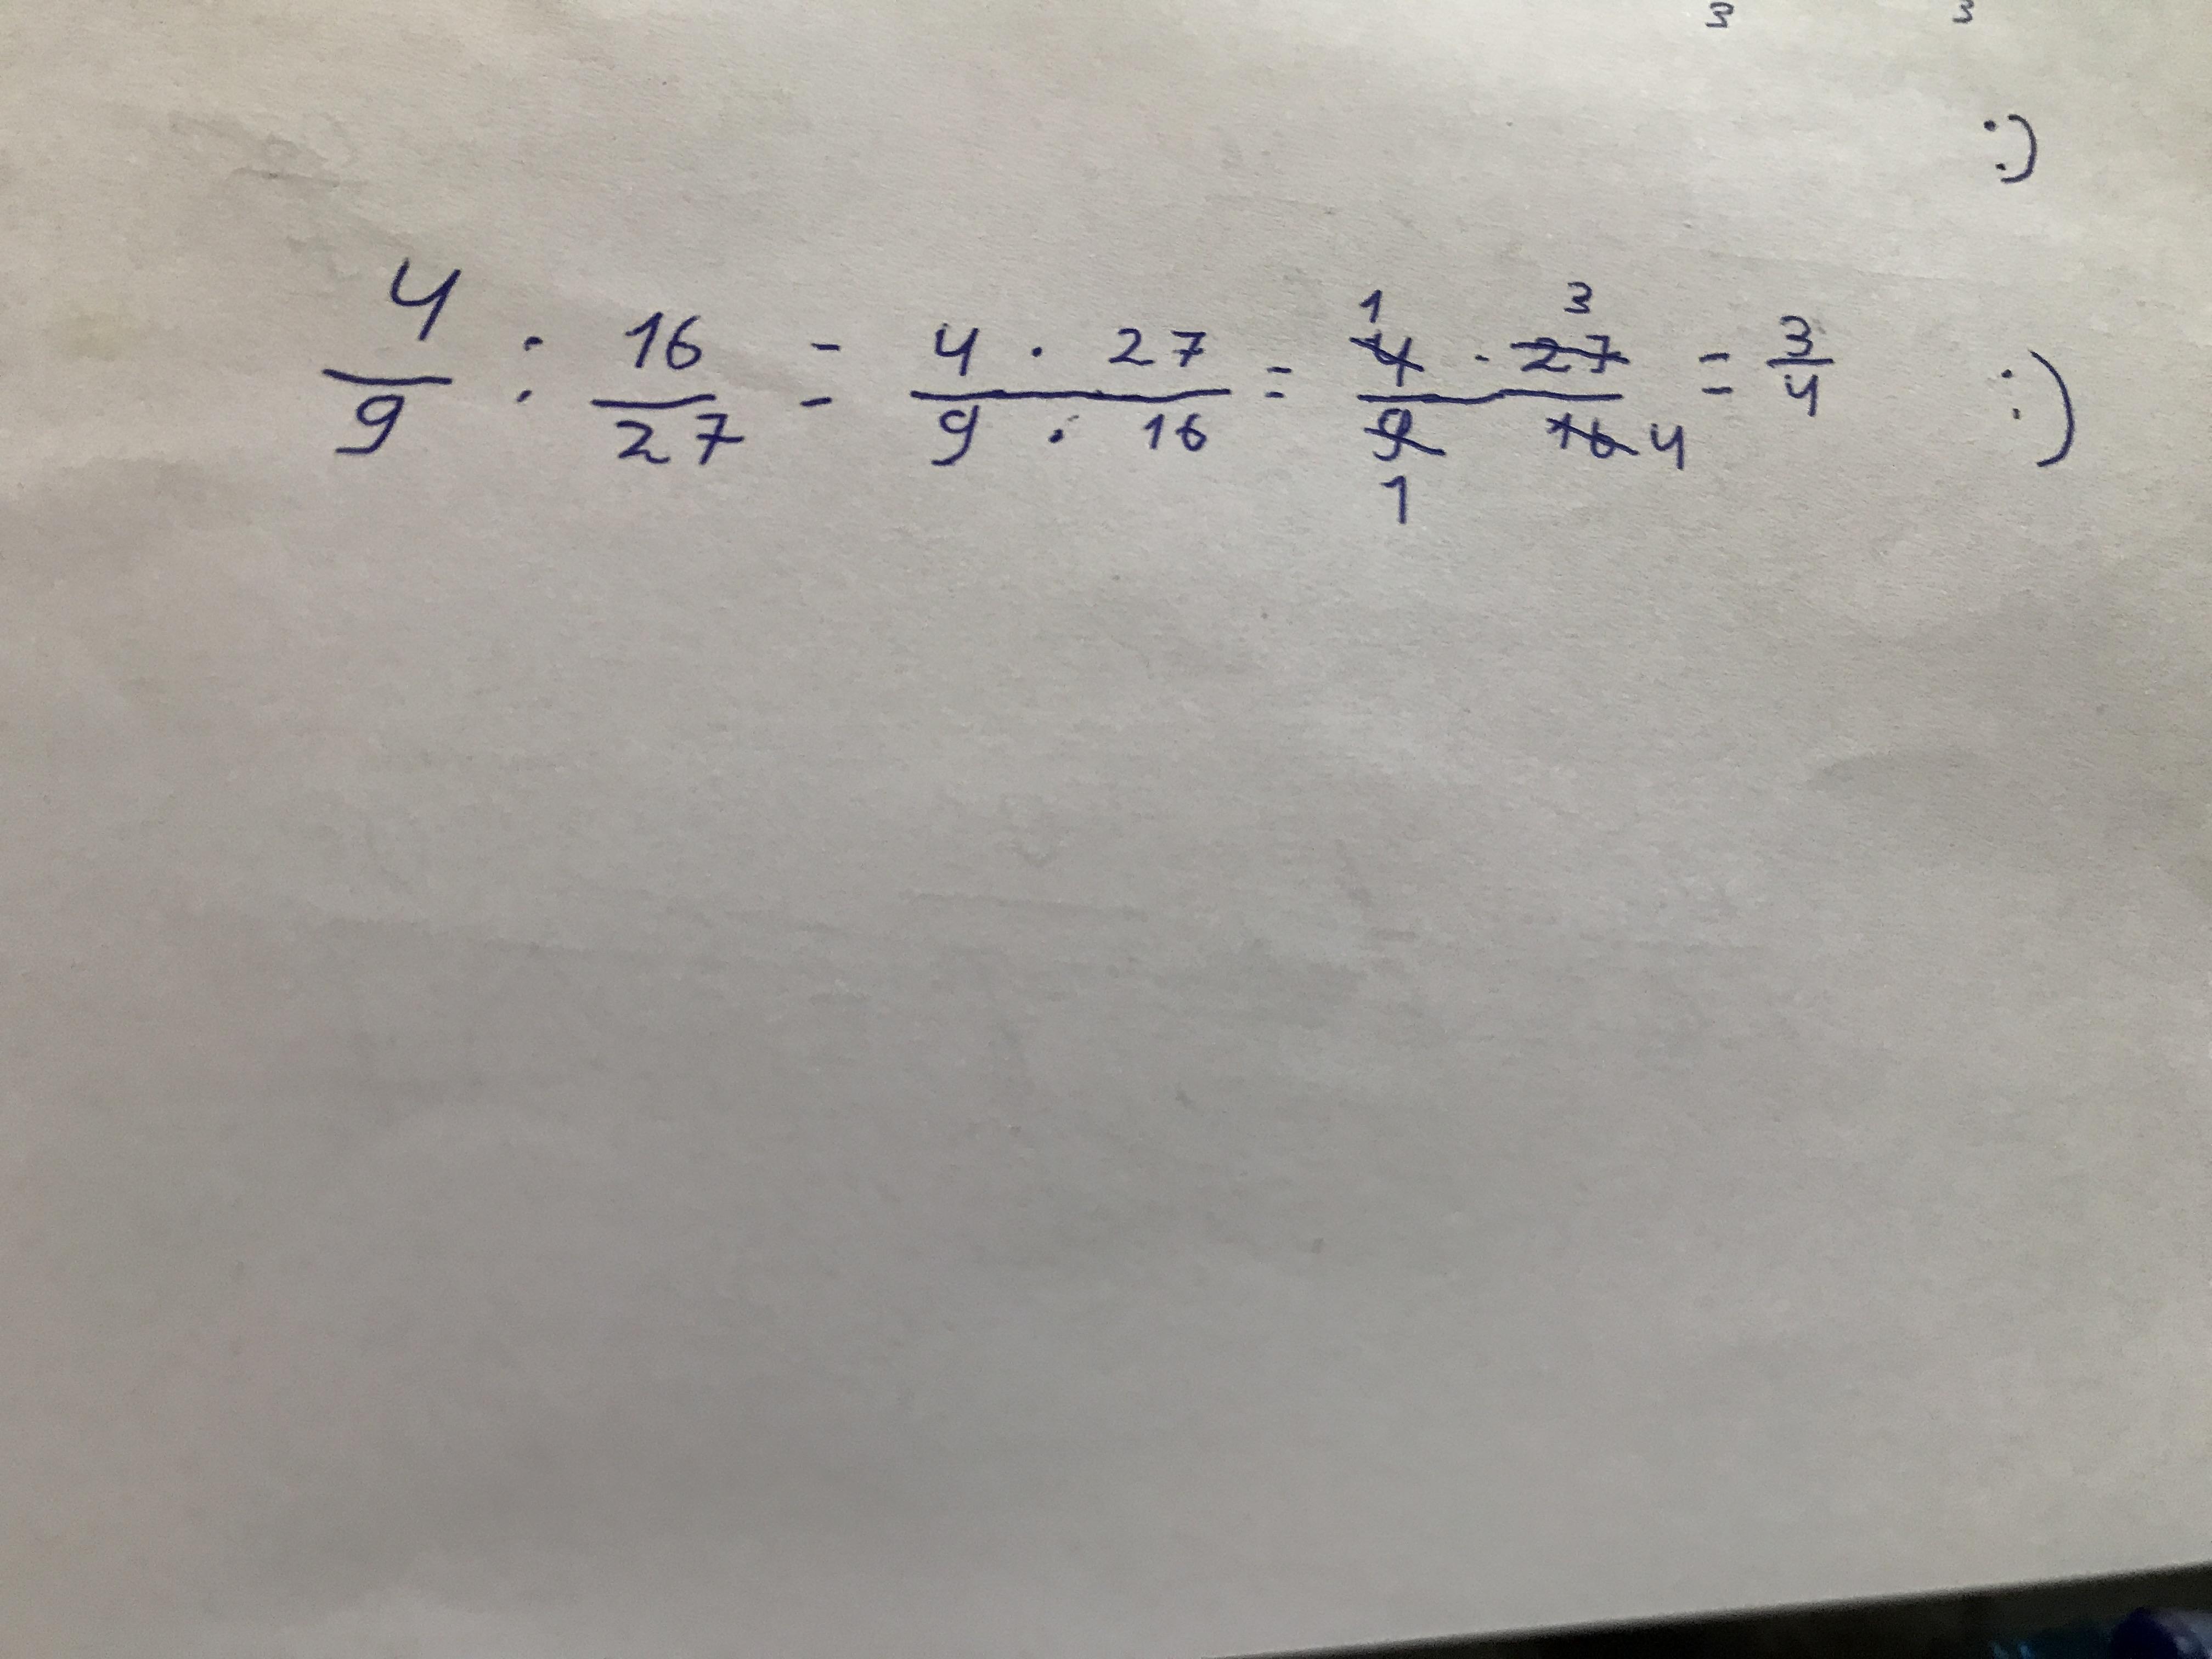 3 3
:)
4/9 : 16/27 = 4 · 27 / 9 · 16 = 1 3 4 · 27 / 9 16 4 1 = 3/4 :)